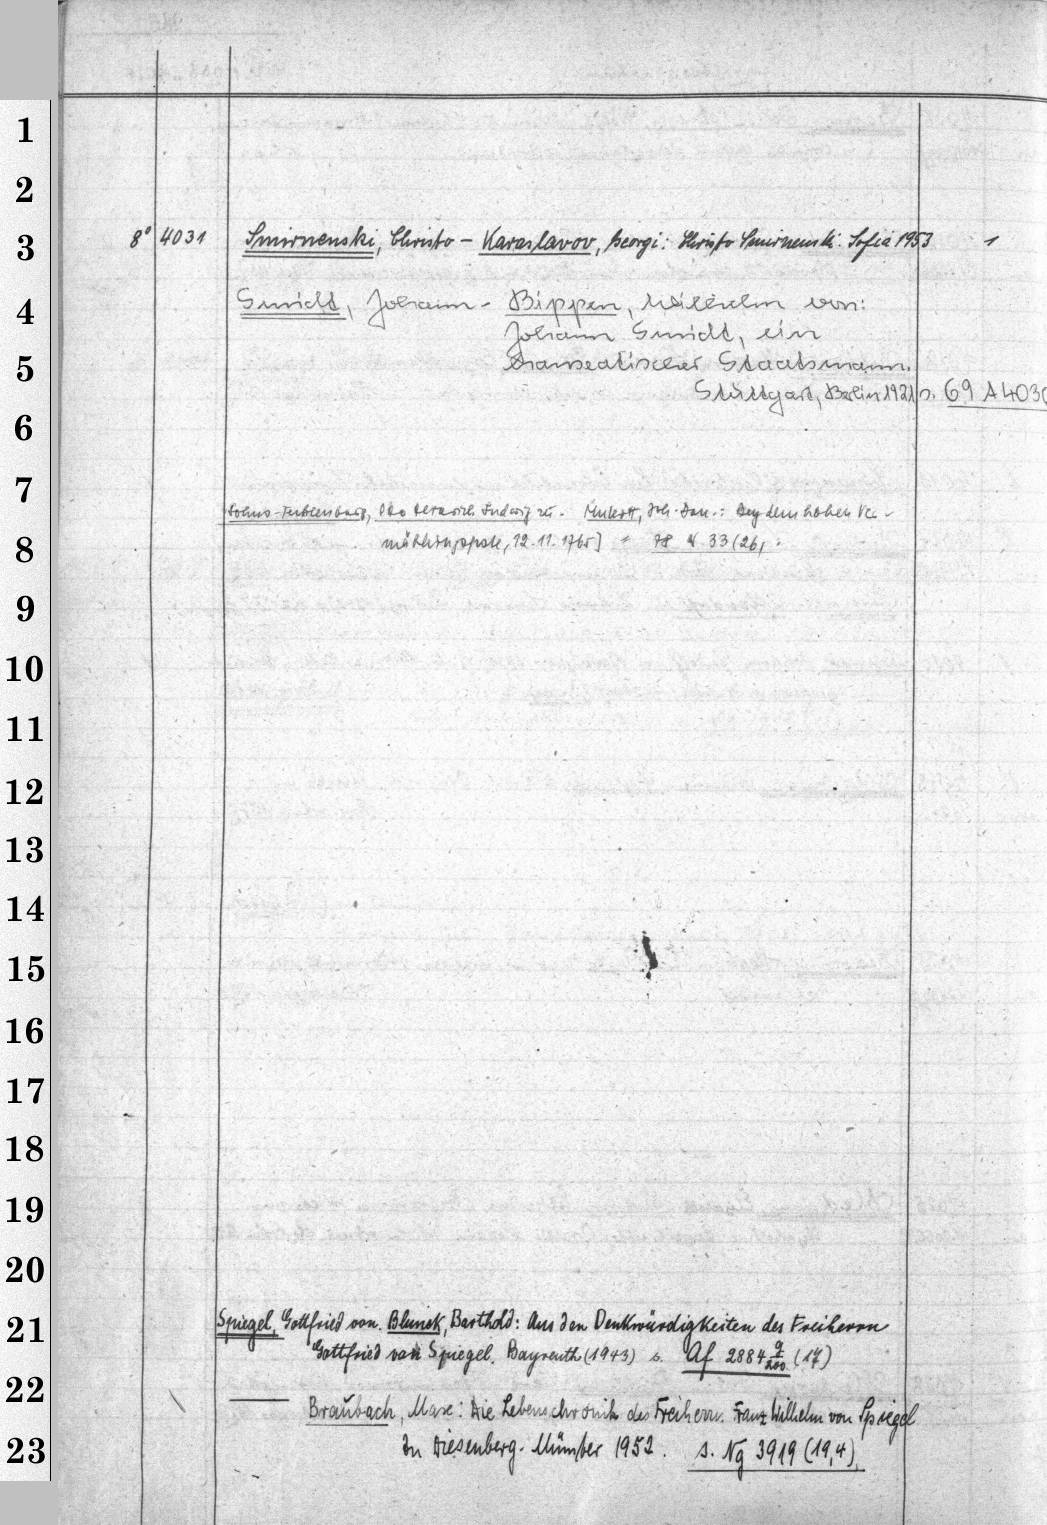 1
2
3
8° 4031 Smirnenski, Christo - Karaslavov, Georgi: Christo Smirnenski. Sofia 1953 1
4
Smidt, Johann - Bippen, Wilhelm von:
Johann Smidt, ein
5
hanseatischer Staatsmann.
Stuttgart, Berlin 1921 s. 69 A 4030
6
7
Ludwig zu. Joh. Dan.: Bey dem hohen Ver-
8
12.11.1765] 78 33 (26)
9
10
11
12
13
14
15
16
17
18
19
20
21
Spiegel, Gottfried von. Blunck, Barthold: Aus den Denkwürdigkeiten des Freiherrn
Gottfried von Spiegel. Bayreuth (1943) s. Af 2884 9/200 (17)
22
Braubach, Max: Die Lebenschronik des Freiherrn Franz Wilhelm von Spiegel
23
zu Diesenberg. Münster 1952. s. Ng 3919 (19,4)